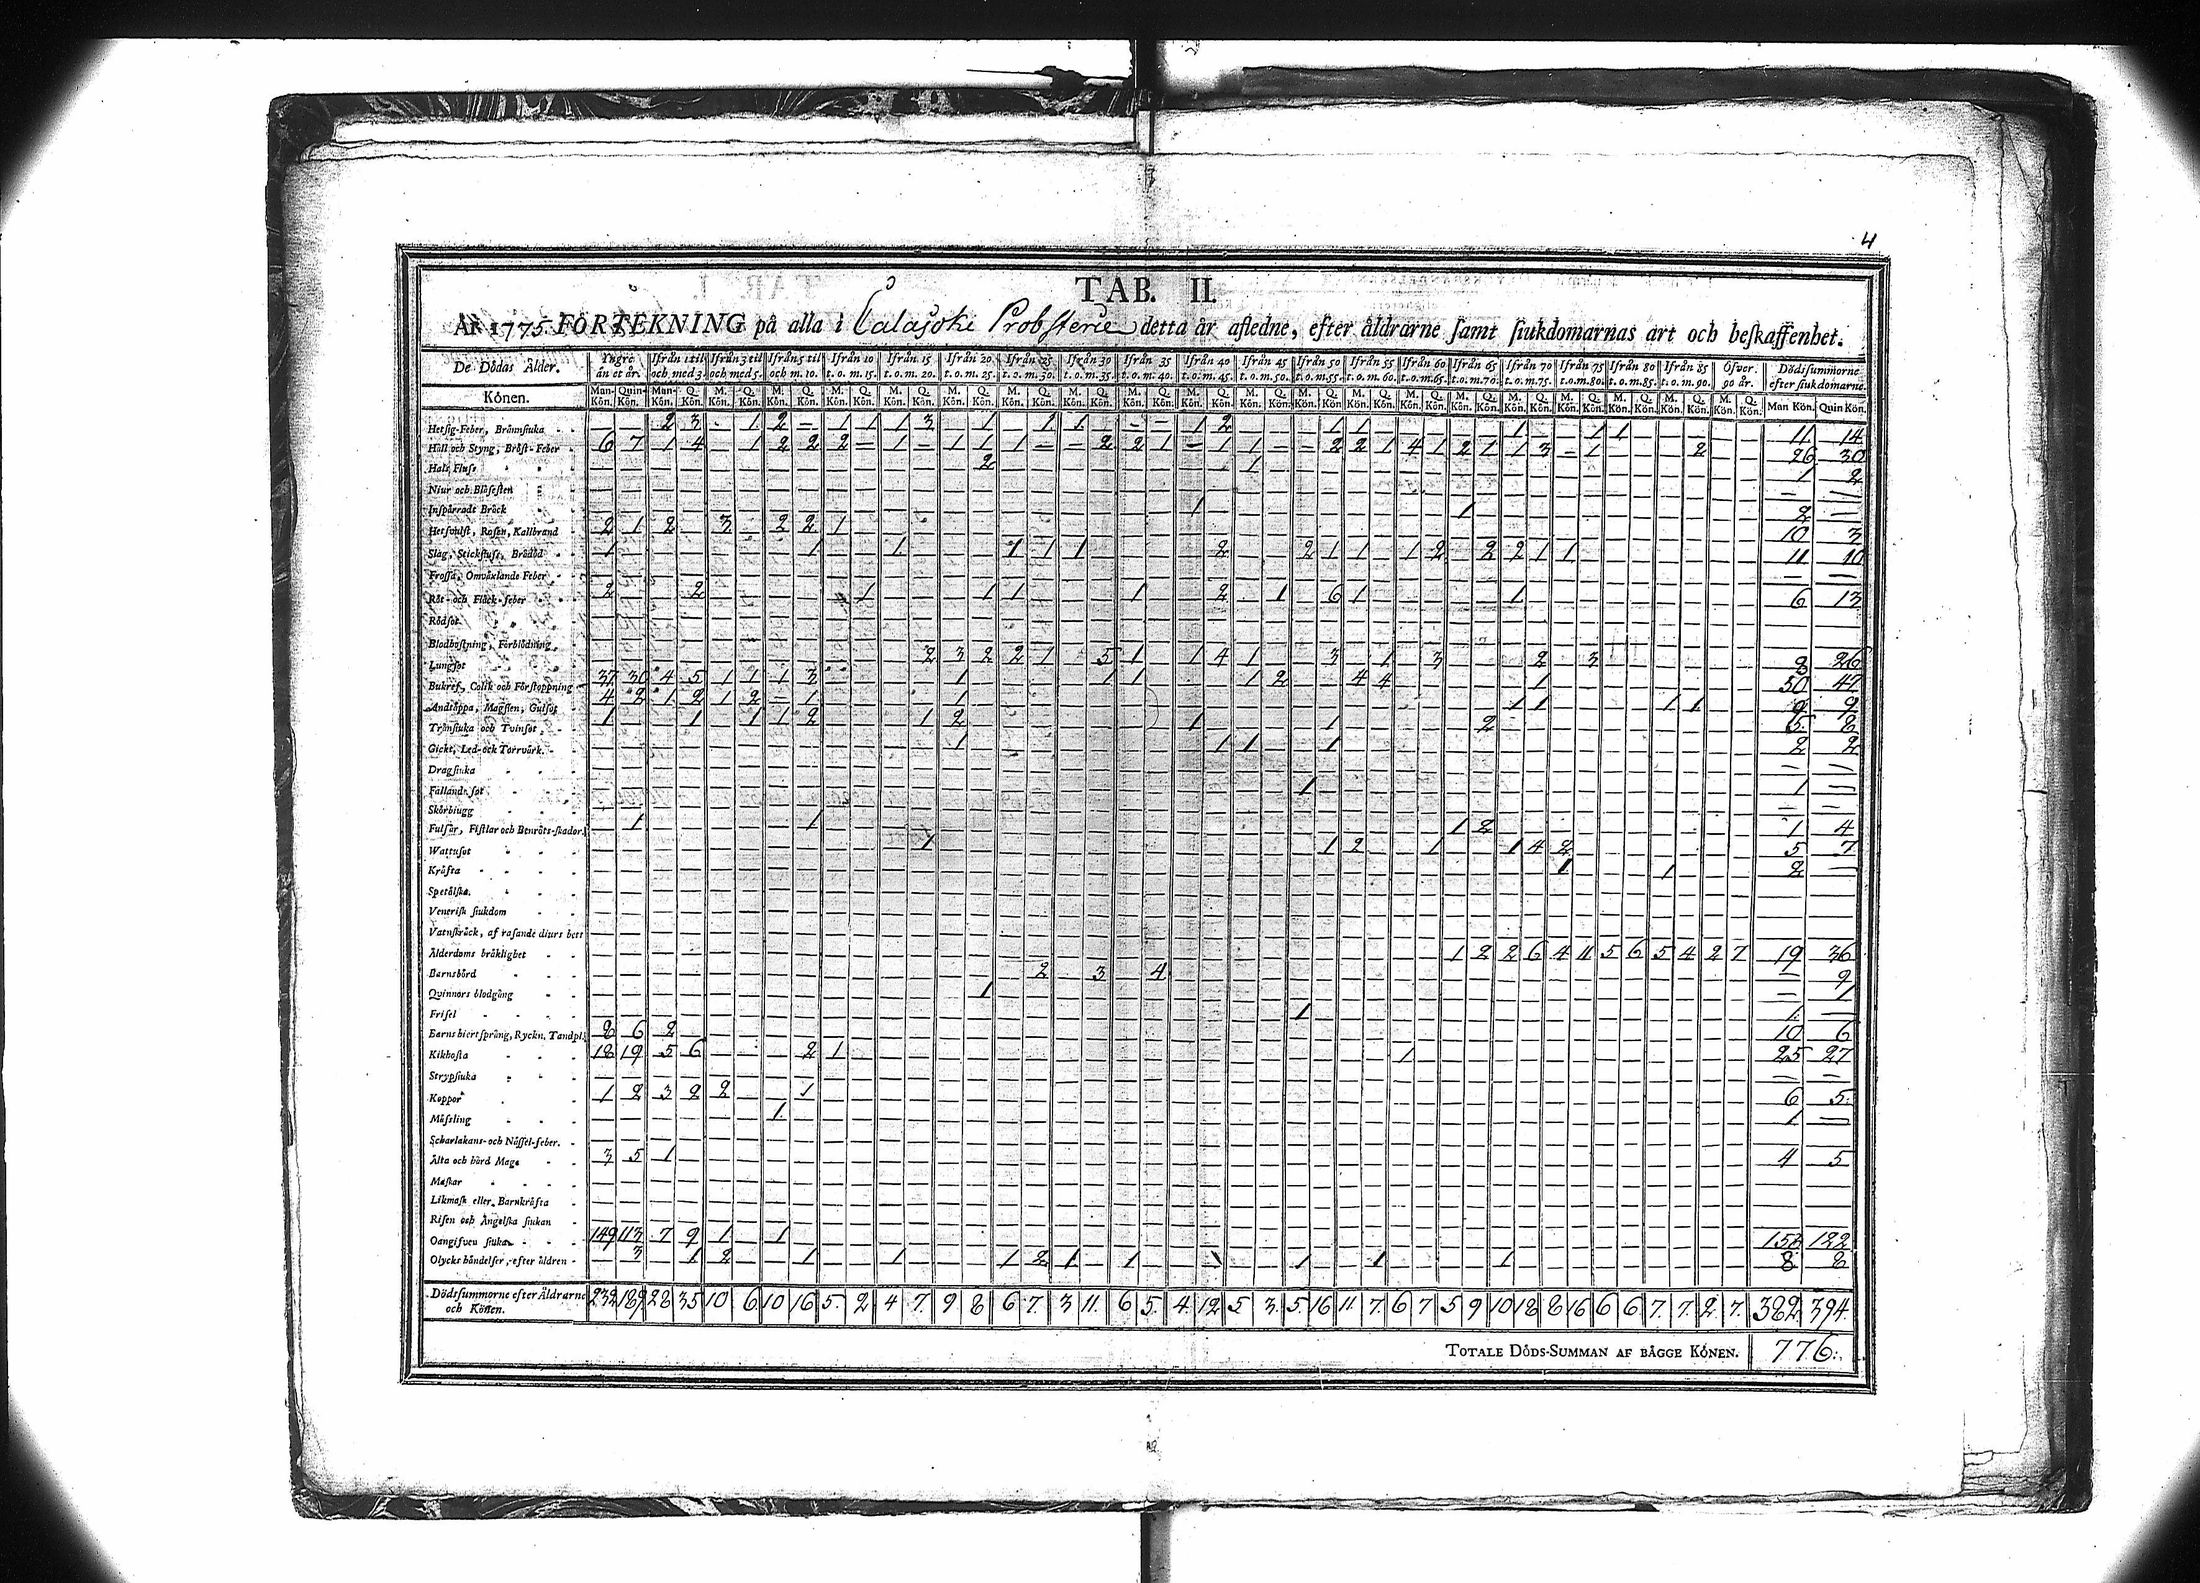 4
TAB. II.
År 1775. FÖRTEKNING på alla i Calajoki Probsterie detta år afledne, efter åldrarne samt siukdomarnas art och beskaffenhet.
De Dödas Ålder. Yngre än et år. Ifrån 1 til och med 3. Ifrån 3 til och med 5. Ifrån 5 til och m. 10. Ifrån 10 t. o. m. 15. Ifrån 15 t. o. m. 20. Ifrån 20 t. o. m. 25. Ifrån 25 t. o. m. 30. Ifrån 30 t. o. m. 35. Ifrån 35 t. o. m. 40. Ifrån 40 t. o. m. 45. Ifrån 45 t. o. m. 50. Ifrån 50 t. o. m. 55. Ifrån 55 t. o. m. 60. Ifrån 60 t. o. m. 65. Ifrån 65 t. o. m. 70. Ifrån 70 t. o. m. 75. Ifrån 75 t. o. m. 80. Ifrån 80 t. o. m. 85. Ifrån 85 t. o. m. 90. Öfver 90 år. Dödssummorne efter siukdomarne.
Könen. Man-Kön. Quin-Kön. Man-Kön. Q. Kön. M. Kön. Q. Kön. M. Kön. Q. Kön. M. Kön. Q. Kön. M. Kön. Q. Kön. M. Kön. Q. Kön. M. Kön. Q. Kön. M. Kön. Q. Kön. M. Kön. Q. Kön. M. Kön. Q. Kön. M. Kön. Q. Kön. M. Kön. Q. Kön. M. Kön. Q. Kön. M. Kön. Q. Kön. M. Kön. Q. Kön. M. Kön. Q. Kön. M. Kön. Q. Kön. M. Kön. Q. Kön. M. Kön. Q. Kön. M. Kön. Q. Kön. Man Kön. Quin Kön.
Hetsig-Feber, Brännsiuka 2 3 1 2 1 1 1 3 1 1 1 1 2 1 1 1 1 1 11 14
Håll och Styng, Bröst-Feber 6 7 1 4 1 2 2 2 1 1 1 1 2 2 1 1 1 2 2 1 4 1 2 1 1 3 1 2 26 30
Hals, Fluss 2 1 1 2
Niur och Blåsesten
Inspärradt Bråck 1 1 2
Hetsvulst, Rosen, Kallbrand 2 1 2 3 2 2 1 10 3
Slag, Stickfluss, Brådöd 1 1 1 1 1 1 2 2 1 1 1 2 2 2 1 1 11 10
Frossa, Omväxlande Feber
Röt- och Fläck-feber 2 2 1 1 1 1 2 1 6 1 1 6 13
Rödsot
Blodhostning, Förblödning
Lungsot 2 3 2 2 1 5 1 1 4 1 3 1 3 2 3 8 26
Bukref, Colik och Förstoppning 37 30 4 5 1 1 1 3 1 1 1 1 2 4 4 1 50 47
Andtäppa, Magsten, Gulsot 4 2 1 2 1 2 1 1 1 1 1 1 9 9
Trånsiuka och Tvinsot 1 1 1 1 2 1 2 1 1 2 5 8
Gickt, Led-och Torrvärk 1 1 1 1 2 2
Dragsiuka
Fallande sot 1 1
Skörbiugg
Fulsår, Fistlar och Benröts-skador 1 1 1 2 1 4
Wattusot 1 1 2 1 1 4 2 5 7
Kräfta 1 1 2
Spetälska
Venerisk siukdom
Vatnskräck, af rasande diurs bett
Ålderdoms bräklighet 1 2 2 6 4 11 5 6 5 4 2 7 19 36
Barnsbörd 2 3 4 9
Qvinnors blodgång 1 1
Frisel 1 1
Barns hiertsprång, Ryckn. Tandpl. 8 6 2 10 6
Kikhosta 18 19 5 6 2 1 1 25 27
Strypsiuka
Koppor 1 2 3 2 2 1 6 5
Mässling 1 1
Scharlakans- och Nässel-feber
Älta och hård Mage 3 5 1 4 5
Maskar
Likmask eller Barnkräfta
Risen och Ängelska siukan
Oangifven siuka 149 113 7 9 1 1 158 122
Olycks händelser, efter åldren 3 1 2 1 1 1 2 1 1 1 1 1 1 8 8
Dödssummorne efter Åldrarne och Könen. 232 189 28 35 10 6 10 16 5 2 4 7 9 8 6 7 3 11 6 5 4 12 5 3 5 16 11 7 6 7 5 9 10 18 8 16 6 6 7 7 2 7 382 394
TOTALE DÖDS-SUMMAN AF BÄGGE KÖNEN. 776